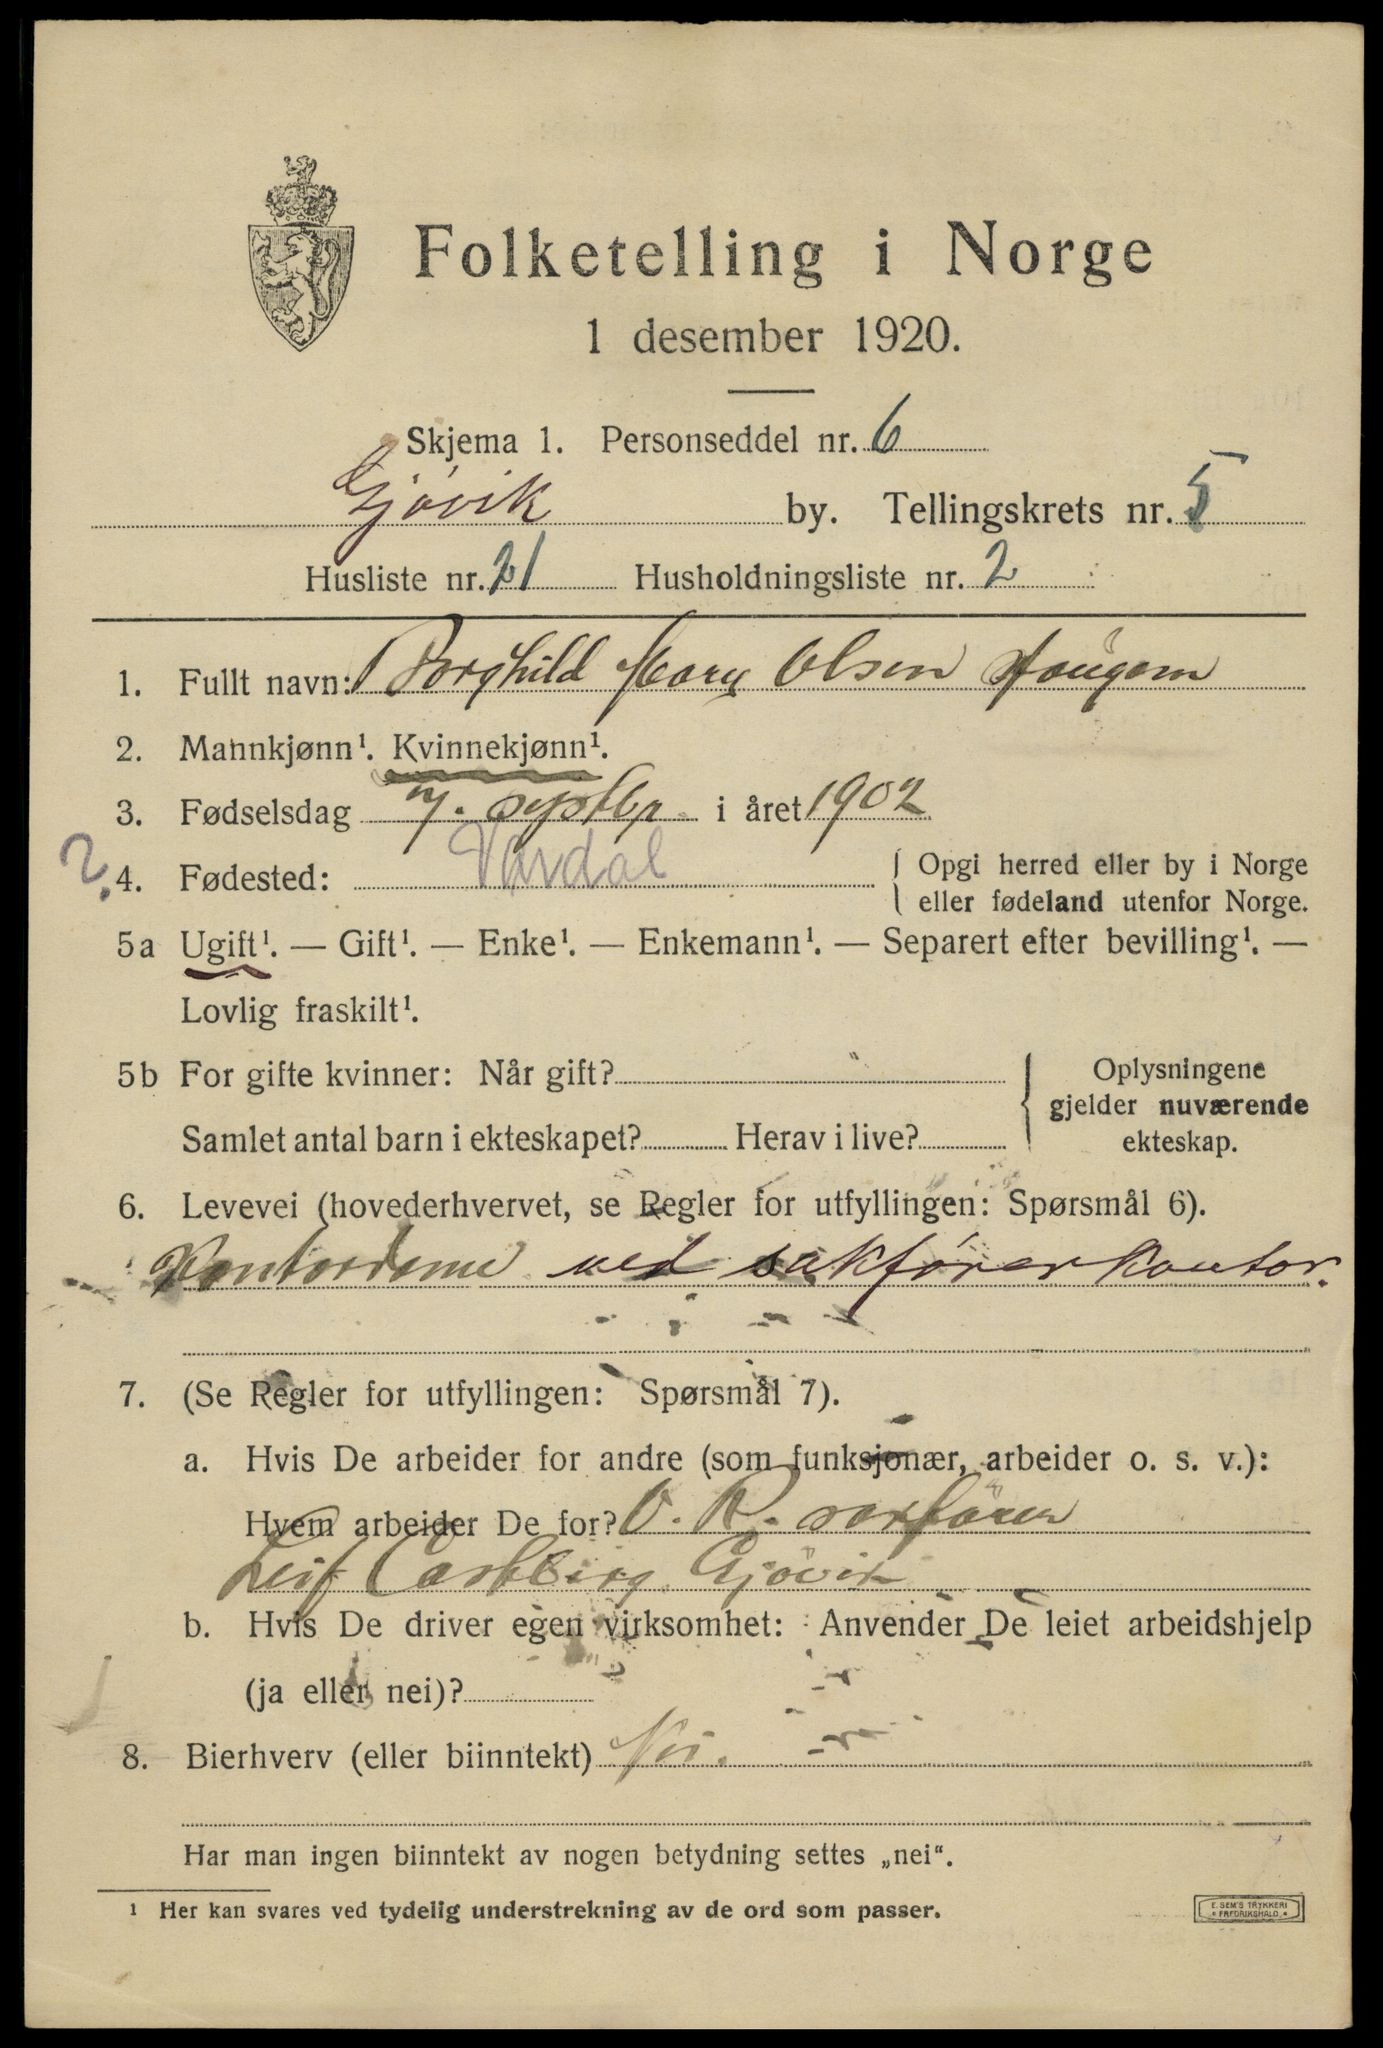 Folketelling i Norge
1 desember 1920.
Skjema 1. Personseddel nr. 6
Gjøvik by. Tellingskrets nr. 5
Husliste nr. 21 Husholdningsliste nr. 2
1. Fullt navn: Borghild Mary Olsen Haugom
2. Mannkjønn¹. Kvinnekjønn¹.
3. Fødselsdag 7. septbr. i året 1902
2. 4. Fødested: Vardal { Opgi herred eller by i Norge
eller fødeland utenfor Norge.
5a Ugift¹. — Gift¹. — Enke¹. — Enkemann¹. — Separert efter bevilling¹. —
Lovlig fraskilt¹.
5b For gifte kvinner: Når gift? { Oplysningene
gjelder nuværende
Samlet antal barn i ekteskapet? Herav i live? ekteskap.
6. Levevei (hovederhvervet, se Regler for utfyllingen: Spørsmål 6).
Kontordame ved sakførerkontor.
7. (Se Regler for utfyllingen: Spørsmål 7).
a. Hvis De arbeider for andre (som funksjonær, arbeider o. s. v.):
Hvem arbeider De for? O. R. sakfører
Leif Castberg Gjøvik
b. Hvis De driver egen virksomhet: Anvender De leiet arbeidshjelp
(ja eller nei)?
8. Bierhverv (eller biinntekt) Nei.
Har man ingen biinntekt av nogen betydning settes „nei“.
¹ Her kan svares ved tydelig understrekning av de ord som passer.
E. SEM'S TRYKKERI
FREDRIKSHALD